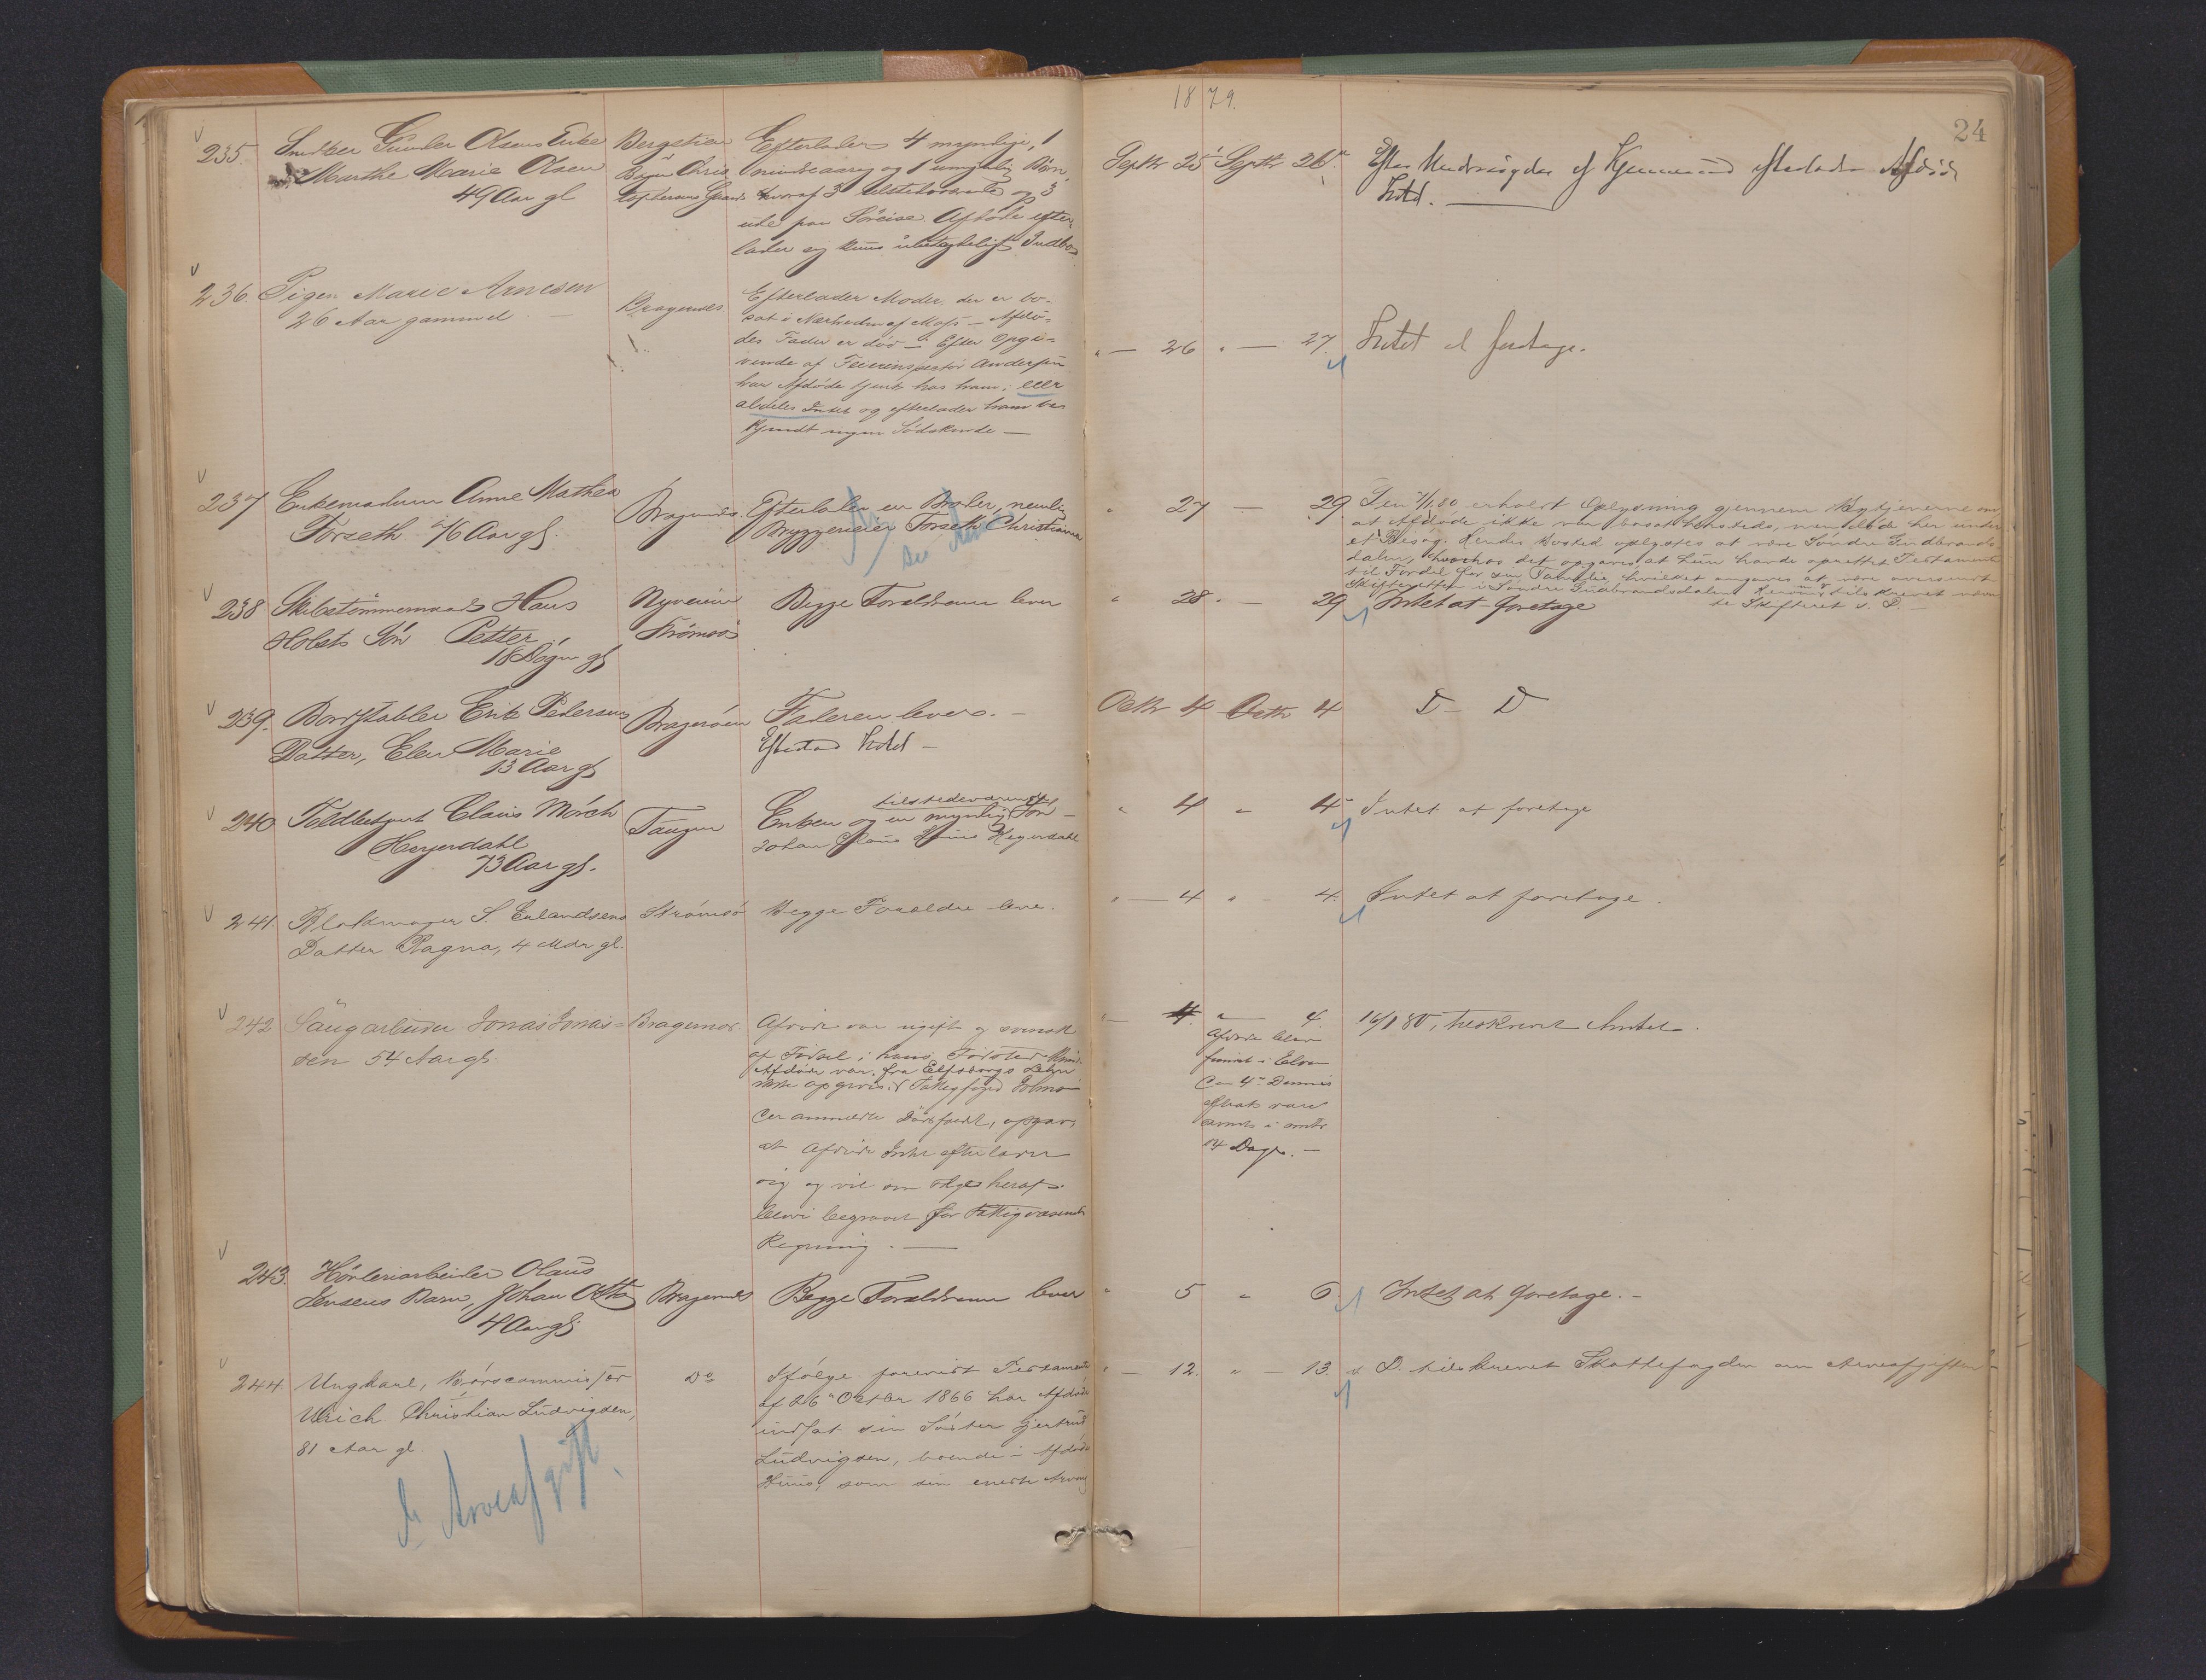 1879.
24
235. Snedker Gunder Olsens Enke
Marthe Marie Olsen
49 Aar gl
Bergstien
Efterlader 4 myndige, 1
mindreaarig og 1 umyndig Børn,
hvoraf 3 tilstedeværende og 3
ude paa Söreise. Afdøde efter-
lader sig kuns ubetydeligt Indbo.
Septbr 25 Septbr 26
Afdøde
Intet.
236. Pigen Marie Arnesen
26 Aar gammel.
Bragernes
Efterlader Moder, der er bo-
sat i Nærheden af Moss – Afdø-
des Fader er død – Efter Opgi-
vende af Feierinspector Andersen
har Afdøde tjent hos ham; eier
aldeles Intet og efterlader ham be
kjendt ingen Södskende –
" – 26 " – 27.
Intet at foretage.
237 Enkemadam Anne Mathea
Forseth 76 Aar gl.
Bragernes
Efterlader en Broder, nemlig
Bryggerieier Forseth Christiania
" 27 – 29.
Den 7/1 80 erholdt Oplysning gjennem
at Afdøde ikke var bosat hersteds, men døde her under
et Besøg. Hendes Bosted oplystes at være Söndre Gudbrands-
dalen, hvorhos det opgaves at hun havde oprettet Testament
til Fordel for sin Familie, hvilket angaves at være oversendt
Skifteretten i Söndre Gudbrandsdalen.
te Skifteret s. D. –
238 Skibstömmermand Hans
Holsts Sön Petter
18 Dögn gl
Nyveien
Strömsö
Begge Forældrene lever
" 28 " – 29
Intet at foretage
239. Bordstabler Erik Pedersens
Datter, Elen Marie
13 Aar gl
Bragerøen
Faderen lever. –
Efterlod Intet –
Octbr 4 Octbr 4
D – D
240 Toldbetjent Claus Mörch
Heyerdahl
73 Aar gl.
Tangen
tilstedeværende
Enken og en myndig Sön –
Johan Claus Heyerdahl
" 4 " 4
Intet at foretage
241. Blokmager S. Erlandsens
Datter Ragna, 4 Mdr gl.
Strömsö
Begge Forældre leve.
" – 4 " – 4.
Intet at foretage.
242 Saugarbeider Jonas Jonas-
sen 54 Aar gl.
Bragernes
Afdøde var ugift og svensk
af Födsel; hans Födested kunde
Afdøde var fra Elfsborgs Lehn
ikke opgives. Fattigfoged
der anmeldte Dödsfaldet, opgav,
at Afdøde Intet efterlader
sig og vil som Følge heraf
blive begravet for Fattigvæsenets
Regning. –
" – 4. " – 4.
Afdøde blev
funden i Elven
den 4de Dennes
efterat have
savnets i omtr
14 Dage. –
16/1 80, tilskrevet Amtet.
243. Hövleriarbeider Olaus
Jensens Barn, Johan Otto
4 Aar gl
Bragernes
Begge Forældrene lever
" 5 " 6
Intet at foretage. –
244 Ungkarl, Börscommissær
Ulrich Christian Ludvigsen,
81 Aar gl.
Do
Ifölge forevist Testamente
af 26 Octbr 1866 har Afdøde
indsat sin Söster Gjertrud
Ludvigsen, boende i Afdødes
Huus, som sin eneste Arving
" – 12. " – 13.
s. D. tilskrevet Skattefogden om Arveafgiften
Arveafgift